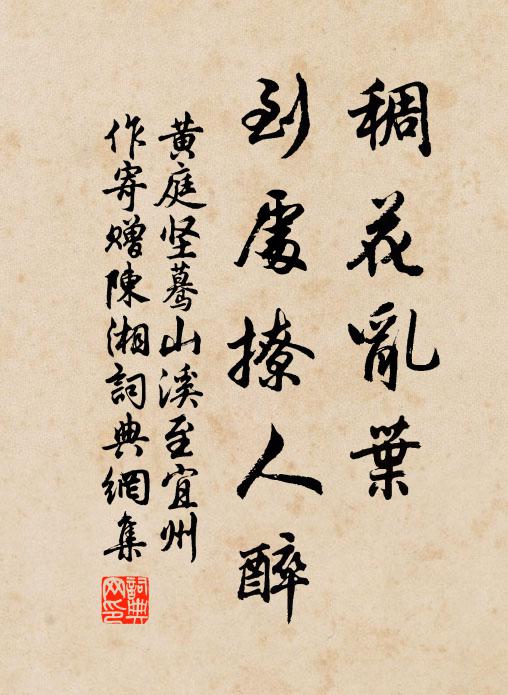 稠花亂葉
到處撩人醉
黃庭坚驀山溪至宜州
作寄贈陳湘詞典網集
詞典網印